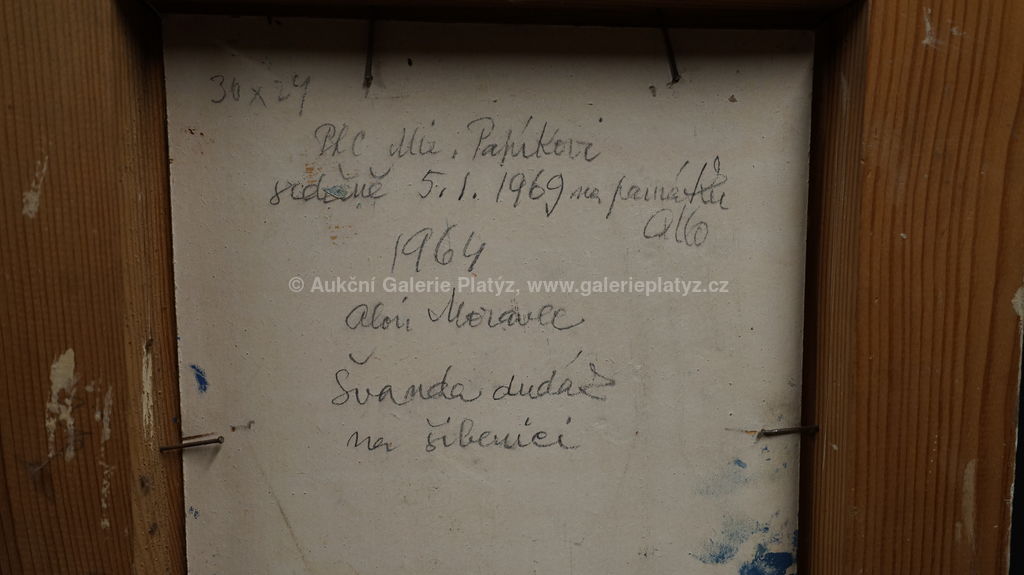 30 x 24
PhC Mir. Papíkovi
srdečně 5.1.1969 na památku
1964
© Aukční Galerie Platýz, www.galerieplatyz.cz
Moravec
Švanda dudák
na šibenici